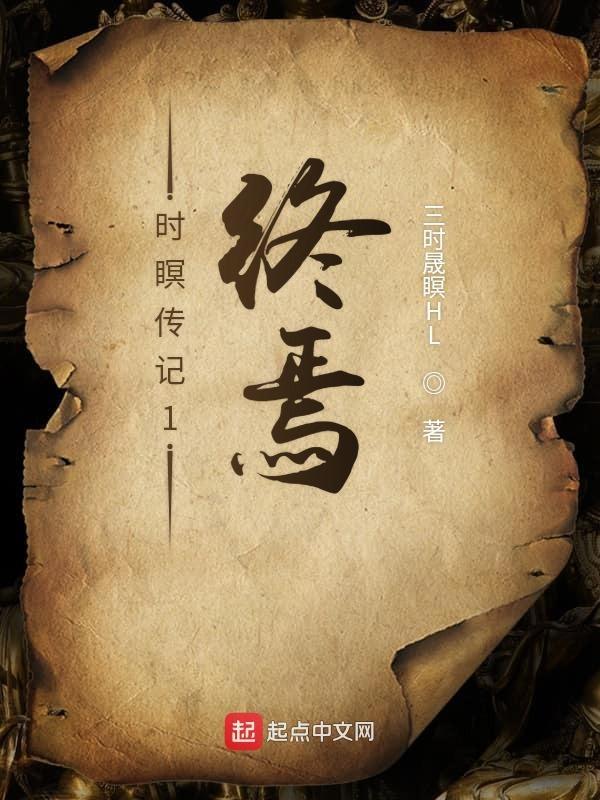 时瞑传记1
终焉
三时晟瞑HL ◎ 著
起 起点中文网